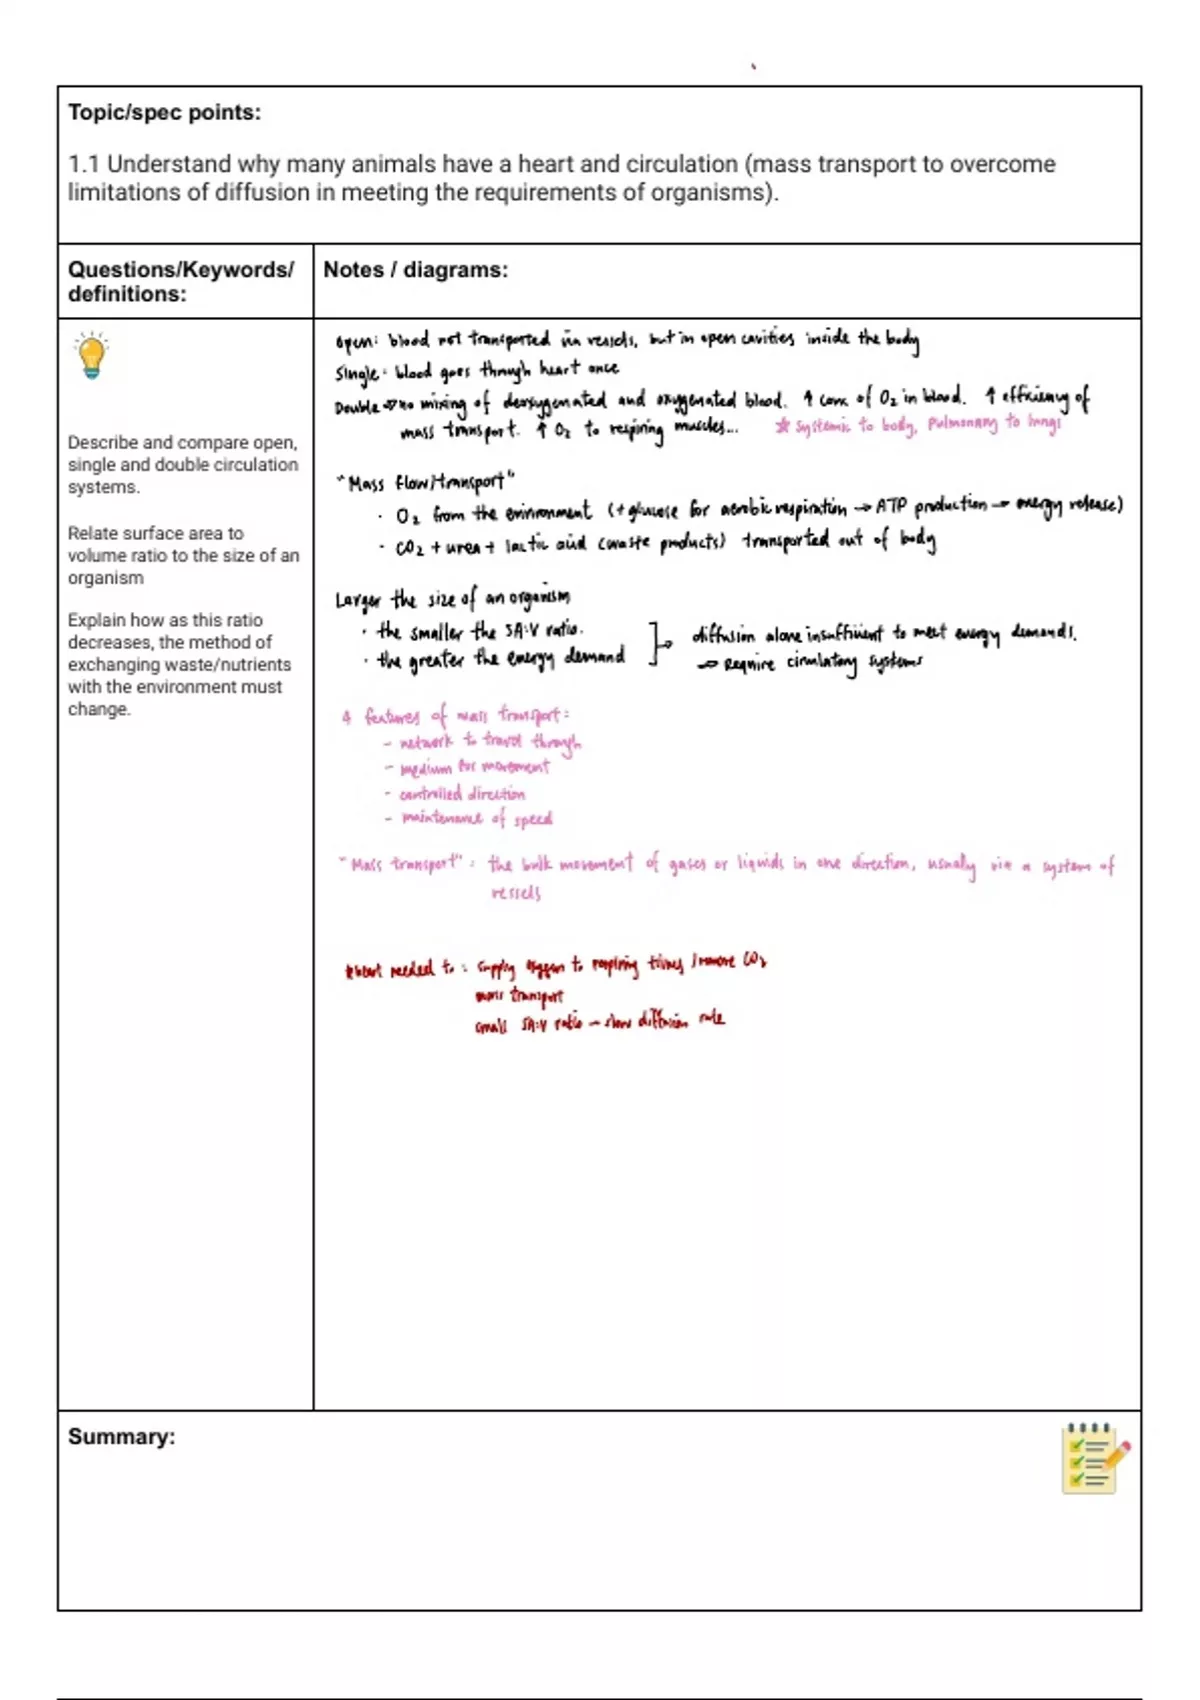 Topic/spec points:
1.1 Understand why many animals have a heart and circulation (mass transport to overcome
limitations of diffusion in meeting the requirements of organisms).
Questions/Keywords/
definitions:
Notes / diagrams:
Describe and compare open,
single and double circulation
systems.
Relate surface area to
volume ratio to the size of an
organism
Explain how as this ratio
decreases, the method of
exchanging waste/nutrients
with the environment must
change.
Open: blood not transported via vessels, but in open cavities inside the body
Single: blood goes through heart once
Double ⇒ no mixing of deoxygenated and oxygenated blood. ↑ conc of O2 in blood. ↑ efficiency of
mass transport. ↑ O2 to respiring muscles... ☆ systemic to body, pulmonary to lungs
"Mass flow/transport"
· O2 from the environment (+ glucose for aerobic respiration → ATP production → energy release)
· CO2 + urea + lactic acid (waste products) transported out of body
Larger the size of an organism
· the smaller the SA:V ratio.
· the greater the energy demand
diffusion alone insufficient to meet energy demands.
→ Require circulatory systems
4 features of mass transport:
- network to travel through
- medium for movement
- controlled direction
- maintenance of speed
"Mass transport": the bulk movement of gases or liquids in one direction, usually via a system of
vessels
*heart needed to: supply oxygen to respiring tissues / remove CO2
mass transport
small SA:V ratio – slow diffusion rate
Summary: